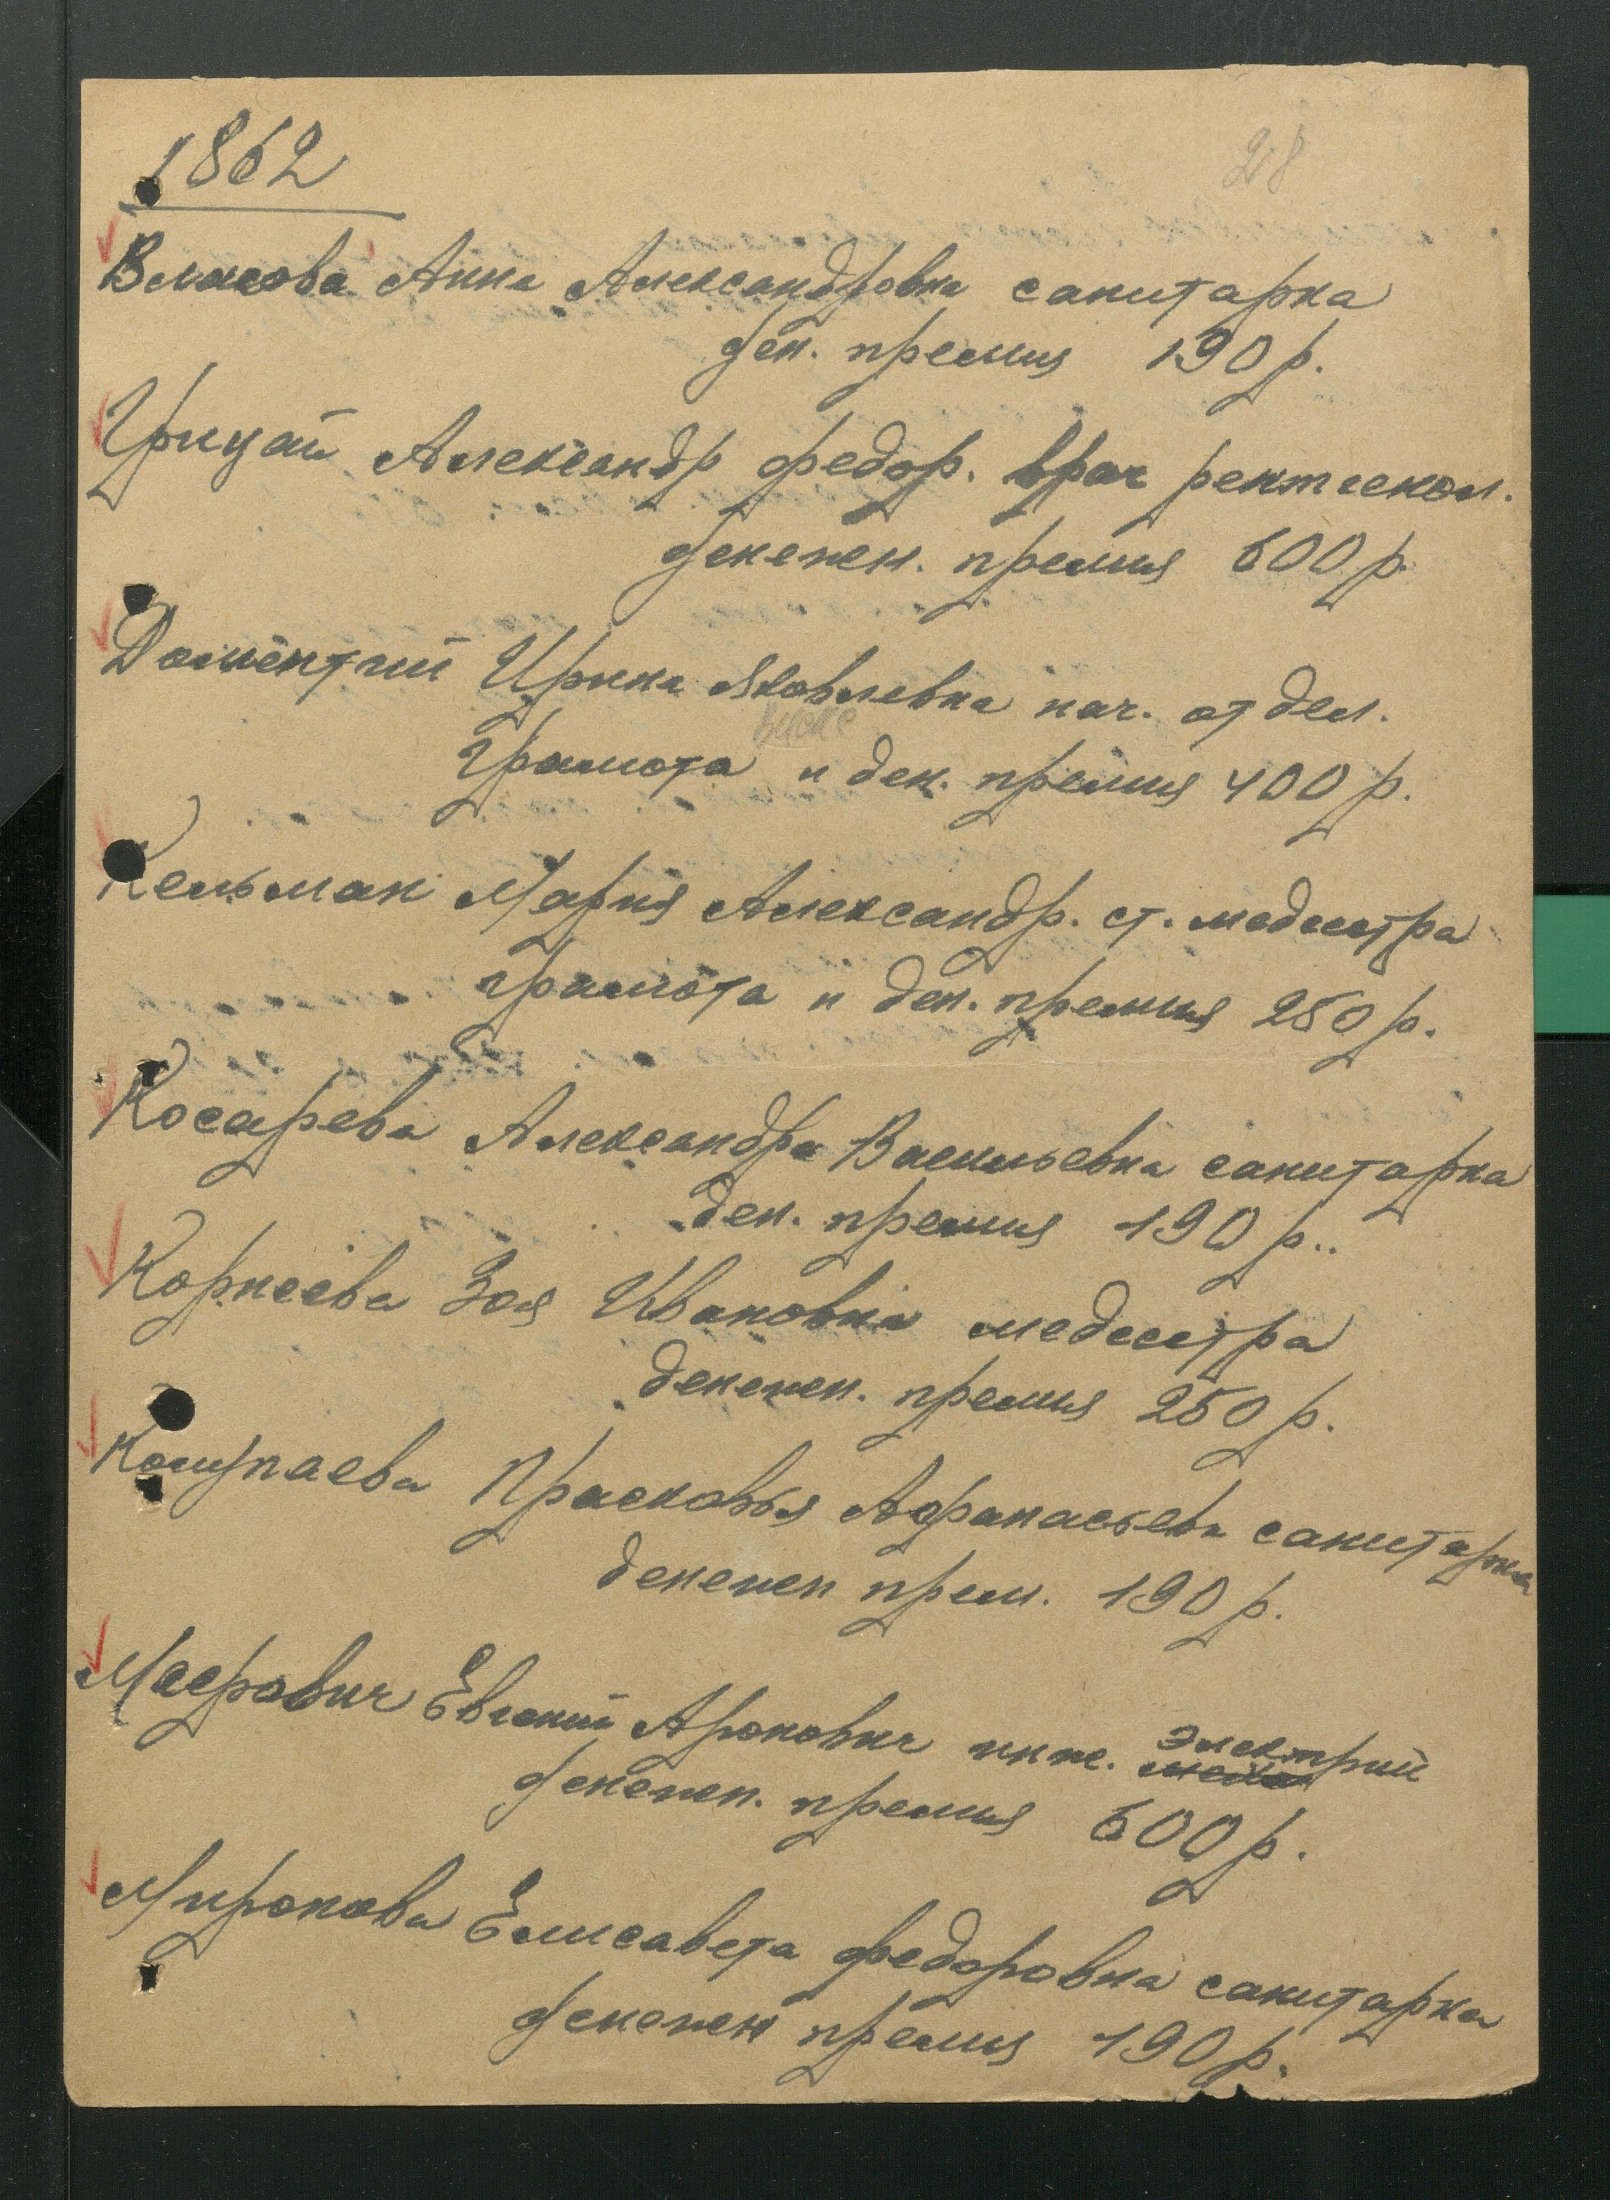 1862
28
Власова Анна Александровна санитарка
ден. премия 190 р.
Грицай Александр Федор. врач рентгенол.
денежн. премия 600 р.
Доментий Ирина Яковлевна нач. отдел.
Грамота и ден. премия 400 р.
Кельман Мария Александр. ст. медсестра
грамота и ден. премия 250 р.
Косарева Александра Васильевна санитарка
ден. премия 190 р..
Корнеева Зоя Ивановна медсестра
денежн. премия 250 р.
Прасковья Афанасьевн санитарка
денежн прем. 190 р.
Евгений Аронович инж. электрий
денежн. премия 600 р.
Миронова Елисавета Федоровна санитарка
денежн премия 190 р.